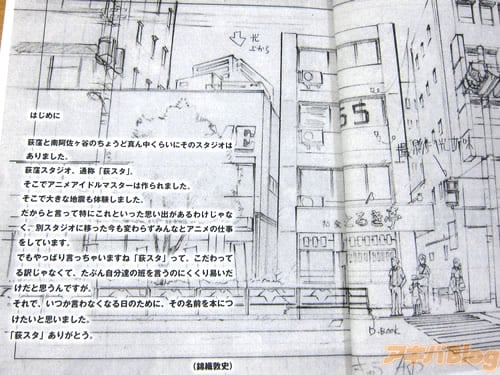 はじめに
荻窪と南阿佐ヶ谷のちょうど真ん中くらいにそのスタジオは
ありました。
荻窪スタジオ。通称「荻スタ」。
そこでアニメアイドルマスターは作られました。
そこで大きな地震も体験しました。
だからと言って特にこれといった思い出があるわけじゃな
く、別スタジオに移った今も変わらずみんなとアニメの仕事
をしています。
でもやっぱり言っちゃいますね「荻スタ」って。こだわって
る訳じゃなくて、たぶん自分達の班を言うのにくくり易いだ
けだと思うんですが。
それで、いつか言わなくなる日のために、その名前を本につ
けたいと思いました。
「荻スタ」ありがとう。
(錦織敦史)
北
上から
55
D.BOOK
アキバBlog